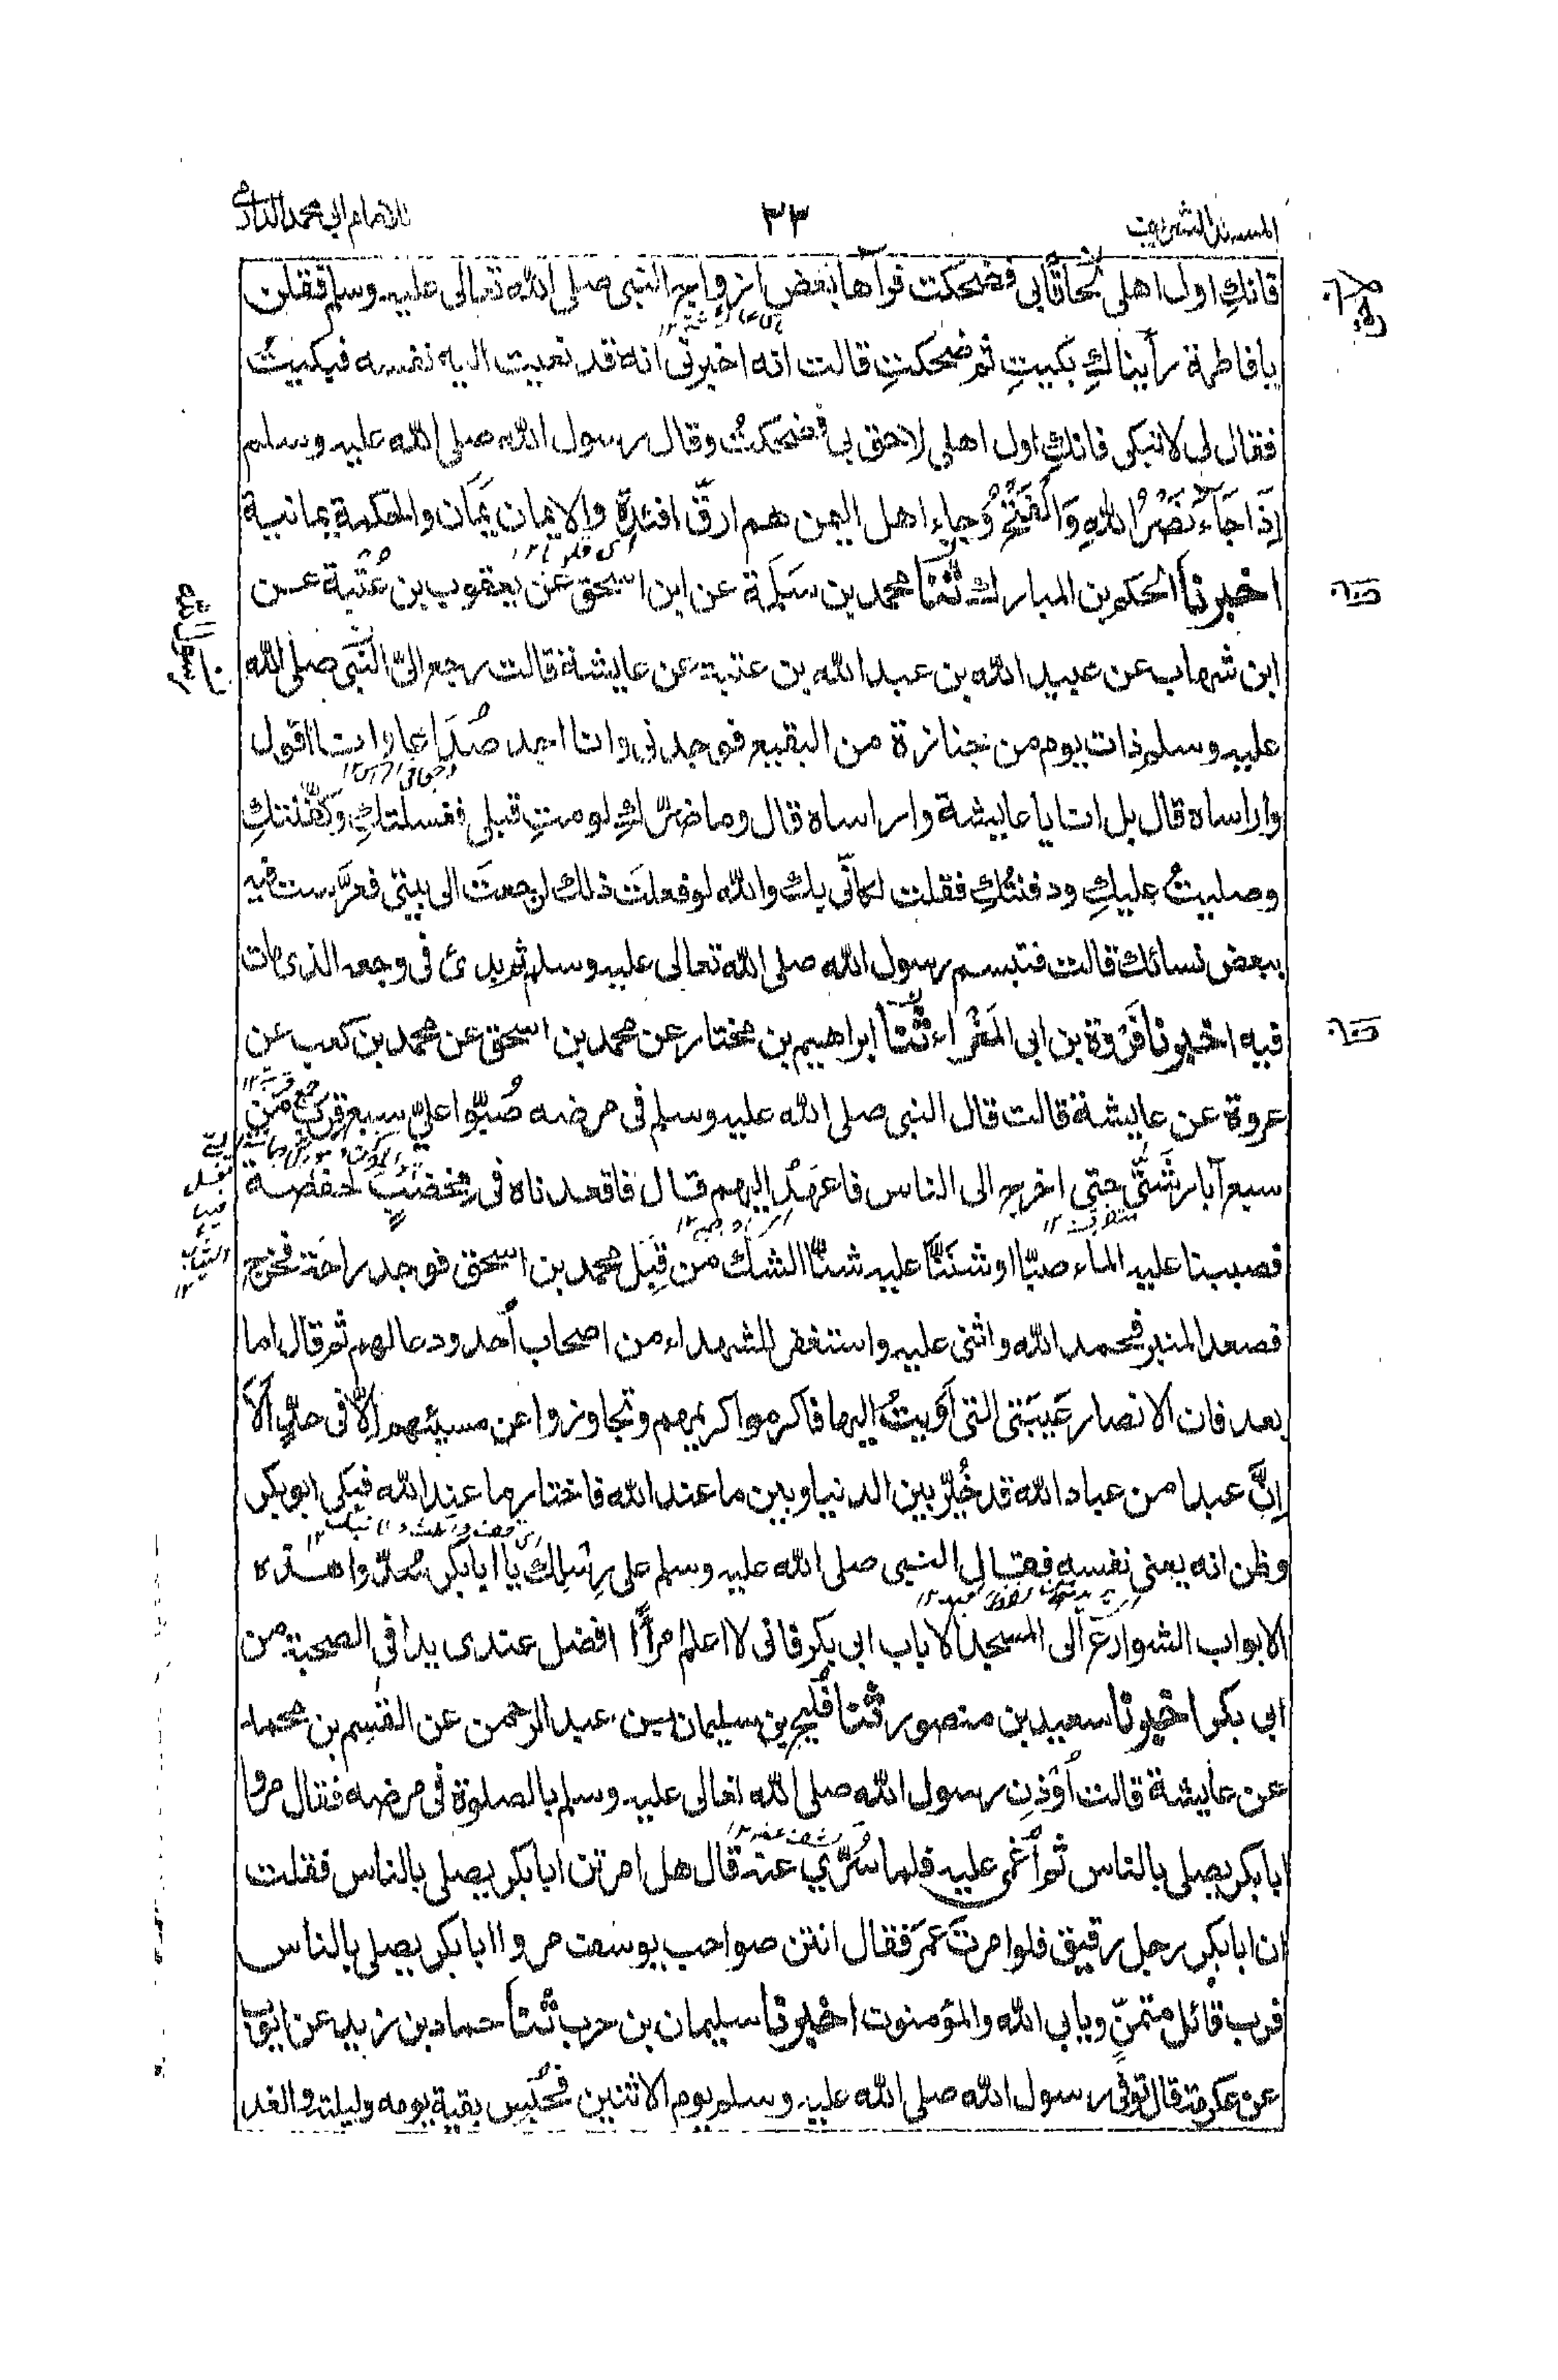 المسند الشريف
٣٣
للامام ابي محمد الدارمي
فانكِ اول اهلى لحاقًا بى فضحكت فرآها بعض ازواج النبى صلى الله تعالى عليه وسلم فقلن
يا فاطمة رأيناكِ بكيتِ ثم ضحكتِ قالت انه اخبرنى انه قد نعيت اليه نفسه فبكيتُ
فقال لى لا تبكى فانكِ اول اهلى لاحق بى فضحكتُ وقال رسول الله صلى الله عليه وسلم
اِذَا جَآءَ نَصْرُ اللهِ وَالْفَتْحُ وجاء اهل اليمن هم ارقّ افئدة والايمان يمان والحكمة يمانية
اى قلوبا ١٢
اخبرنا الحكم بن المبارك ثنا محمد بن سَلَمة عن ابن اسحق عن يعقوب بن عُتْبة عن
ابن شهاب عن عبيد الله بن عبد الله بن عتبة عن عايشة قالت رجع الىّ النَّبى صلى الله
رسول الله
عليه وسلم ذات يوم من جنازة من البقيع فوجدنى وانا اجد صُدَاعا وانا اقول
وا راساه قال بل انا يا عايشة وا راساه قال وما ضرّكِ لو متِ قبلى فغسلتكِ وكفّنتكِ
وصليتُ عليكِ ودفنتُكِ فقلت لكانّى بك والله لو فعلتَ ذلك لرجعتَ الى بيتى فعرّست فيه
ببعض نسائك قالت فتبسم رسول الله صلى الله تعالى عليه وسلم ثم بدئ فى وجعه الذى مات
فيه اخبرنا فَرْوة بن ابى المَغْراء ثنا ابراهيم بن مختار عن محمد بن اسحق عن محمد بن كعب عن
عروة عن عايشة قالت قال النبى صلى الله عليه وسلم فى مرضه صُبّوا علىّ سبع قِرَب من
جمع قربة ١٢
سبع آبار شَتّى حتى اخرج الى الناس فاعهدَ اليهم قال فاقعدناه فى مِخْضَبٍ لحفصة
متفرقة ١٢
فصببنا عليه الماء صبّا او شنَنّا عليه شنّا الشك من قِبَل محمد بن اسحق فوجد راحة فخرج
فصعد المنبر فحمد الله واثنى عليه واستغفر للشهداء من اصحاب اُحد ودعا لهم ثم قال اما
بعد فان الانصار عَيبَتى التى اَوَيتُ اليها فاكرموا كريمهم وتجاوزوا عن مسيئهم اِلّا فى حدّ اَلَا
اِنَّ عبدا من عباد الله قد خُيّر بين الدنيا وبين ما عند الله فاختار ما عند الله فبكى ابو بكر
وظن انه يعنى نفسه فقال النبى صلى الله عليه وسلم على رِسْلِك يا ابا بكر سُدّوا هذه
الابواب الشوارعَ الى المسجد الا باب ابى بكر فانى لا اعلم امرأً افضل عندى يدا فى الصحبة من
ابى بكر اخبرنا سعيد بن منصور ثنا فُلَيح بن سليمان عن عبد الرحمن عن القسم بن محمد
عن عايشة قالت اُوذِن رسول الله صلى الله تعالى عليه وسلم بالصلوة فى مرضه فقال مروا
ابا بكر يصلى بالناس ثم اُغمى عليه فلما سُرّي عنه قال هل امرتن ابا بكر يصلى بالناس فقلت
ان ابا بكر رجل رقيق فلو امرتَ عمَرَ فقال انتن صواحب يوسف مروا ابا بكر يصلى بالناس
فرب قائل متمنّ ويابى الله والمؤمنون اخبرنا سليمان بن حرب ثنا حماد بن زيد عن ايوب
عن عكرمة قال توفى رسول الله صلى الله عليه وسلم يوم الاثنين فحُبِس بقية يومه وليلته والغد